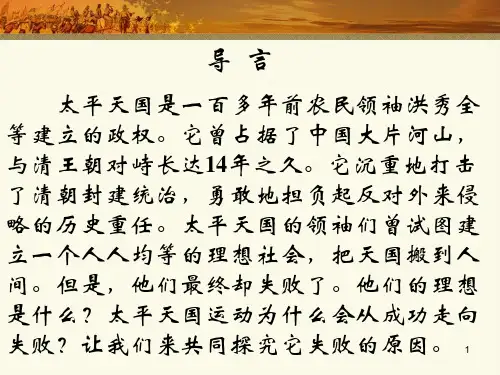 导 言
太平天国是一百多年前农民领袖洪秀全
等建立的政权。它曾占据了中国大片河山，
与清王朝对峙长达14年之久。它沉重地打击
了清朝封建统治，勇敢地担负起反对外来侵
略的历史重任。太平天国的领袖们曾试图建
立一个人人均等的理想社会，把天国搬到人
间。但是，他们最终却失败了。他们的理想
是什么？太平天国运动为什么会从成功走向
失败？让我们来共同探究它失败的原因。 1